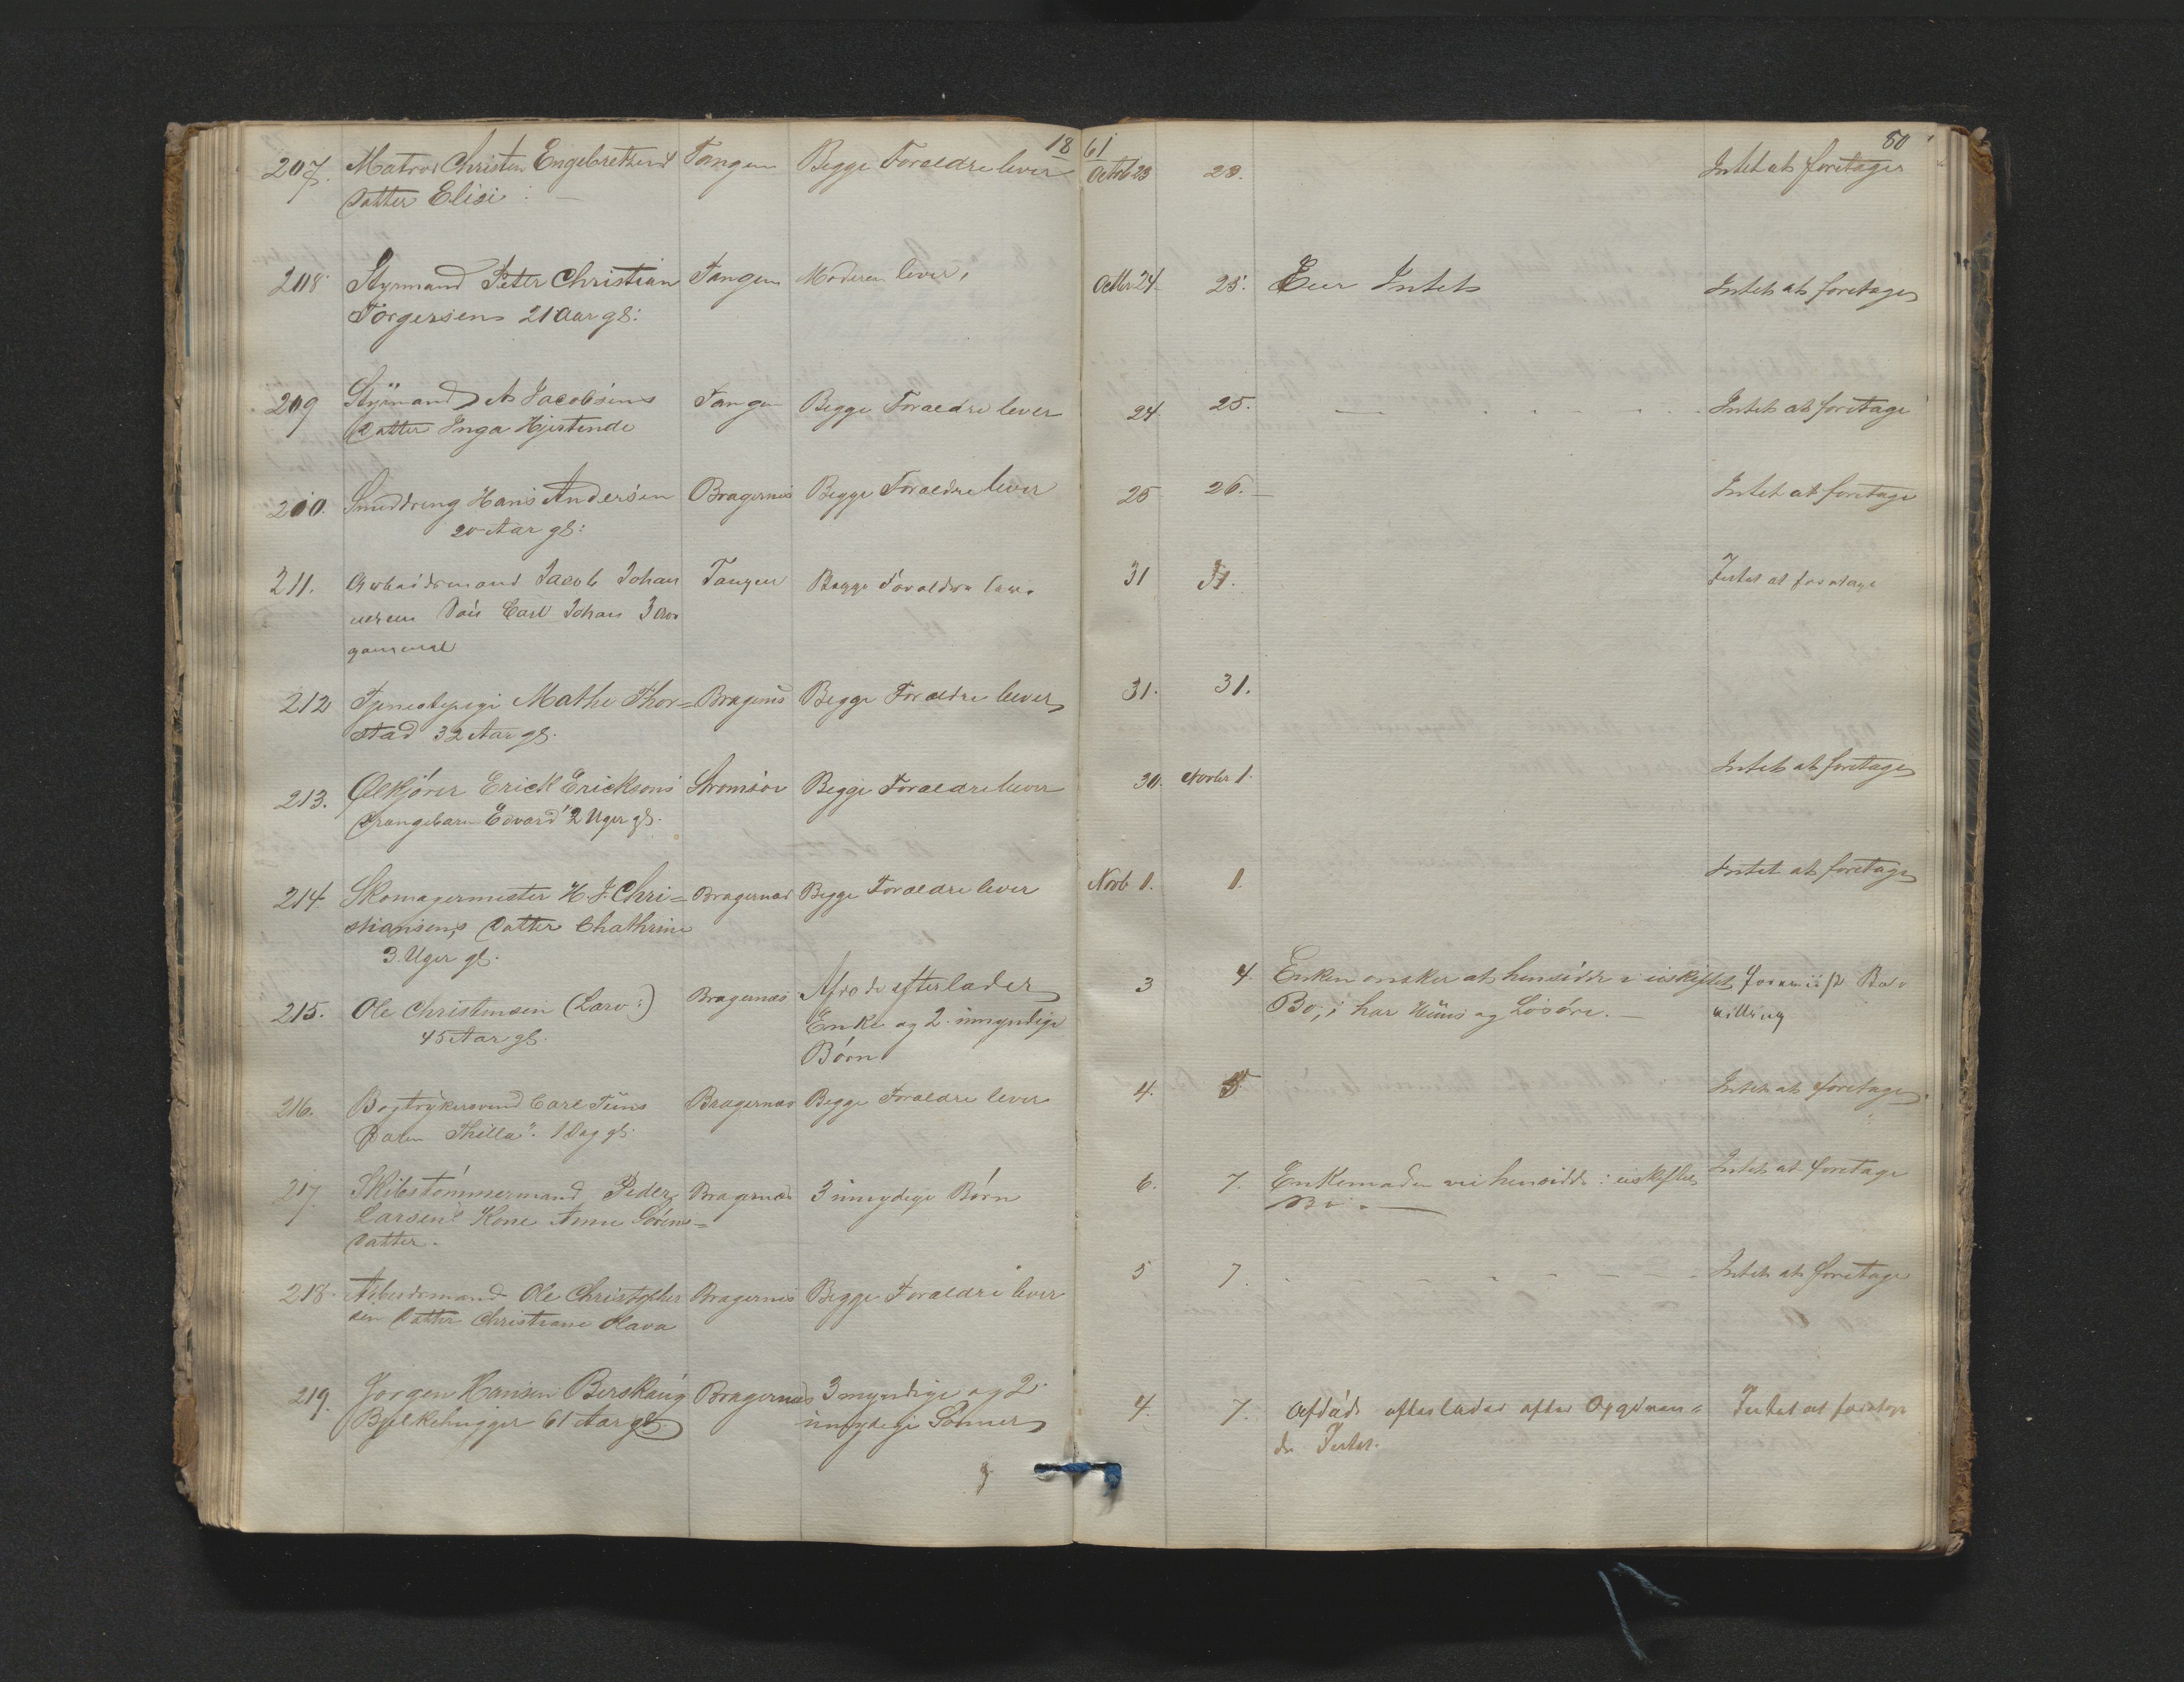 18 61
80
207. Matros Christen Engebretsens Tangen Begge Foraeldre lever Octob 23 23. Intet at foretage
Datter Elise
208. Styrmand Peter Christian Tangen Moderen lever, Octbr 24 25. Eier Intet Intet at foretage
Torgersen 21 Aar gl:
209 Styrmand A Jacobsens Tangen Begge Foraeldre lever 24 25. Intet at foretage
Datter Inga
210. Smeddreng Hans Andersen Bragernes Begge Foraeldre lever 25 26. Intet at foretage
20 Aar gl:
211. Arbeidsmand Jacob Johan Tangen Begge Foraeldre lever 31 31. Intet at foretage
nesen Søn Carl Johan 3 Aar
gammel
212 Tjenestepige Mathe Thor= Bragernes Begge Foraeldre lever 31. 31.
stad 32 Aar gl.
213. Ølkjører Erick Ericksens Strømsøe Begge Foraeldre lever 30. Novbr 1. Intet at foretage
Drengebarn Edvard 2 Uger gl.
214. Skomagermester H. J. Chri= Bragernaes Begge Foraeldre lever Novb 1. 1. Intet at foretage
stiansens Datter Chathrine
3. Uger gl.
215. Ole Christensen (Larv:) Bragernaes Afdøde efterlader 3 4. Enken ønsker at hensidde i uskiftet
45 Aar gl. Enke og 2. umyndige Bo, i har Huus og Løsøre.
Børn
216. Bogtrykersvend Carl Bragernaes Begge Foraeldre lever 4. 5 Intet at foretage
1 Dag gl.
217. Skibstømmermand Peder Bragernaes 3 umydige Børn 6. 7. Enkemaden vil hensidde i uskiftet Intet at foretage
Larsens Kone Anne Sørens= Bo.
Datter.
218. Arbeidsmand Ole Christopher Bragernes Begge Foraeldre lever 5 7. Intet at foretage
sen Datter Christiane Olava
219. Jørgen Hansen Berskaug Bragernaes 3 myndige og 2 4. 7. Afdøde efterlader efter Opgivan= Intet at foretage
Bjelkehugger 61 Aar gl. umydige Sønner de Intet.